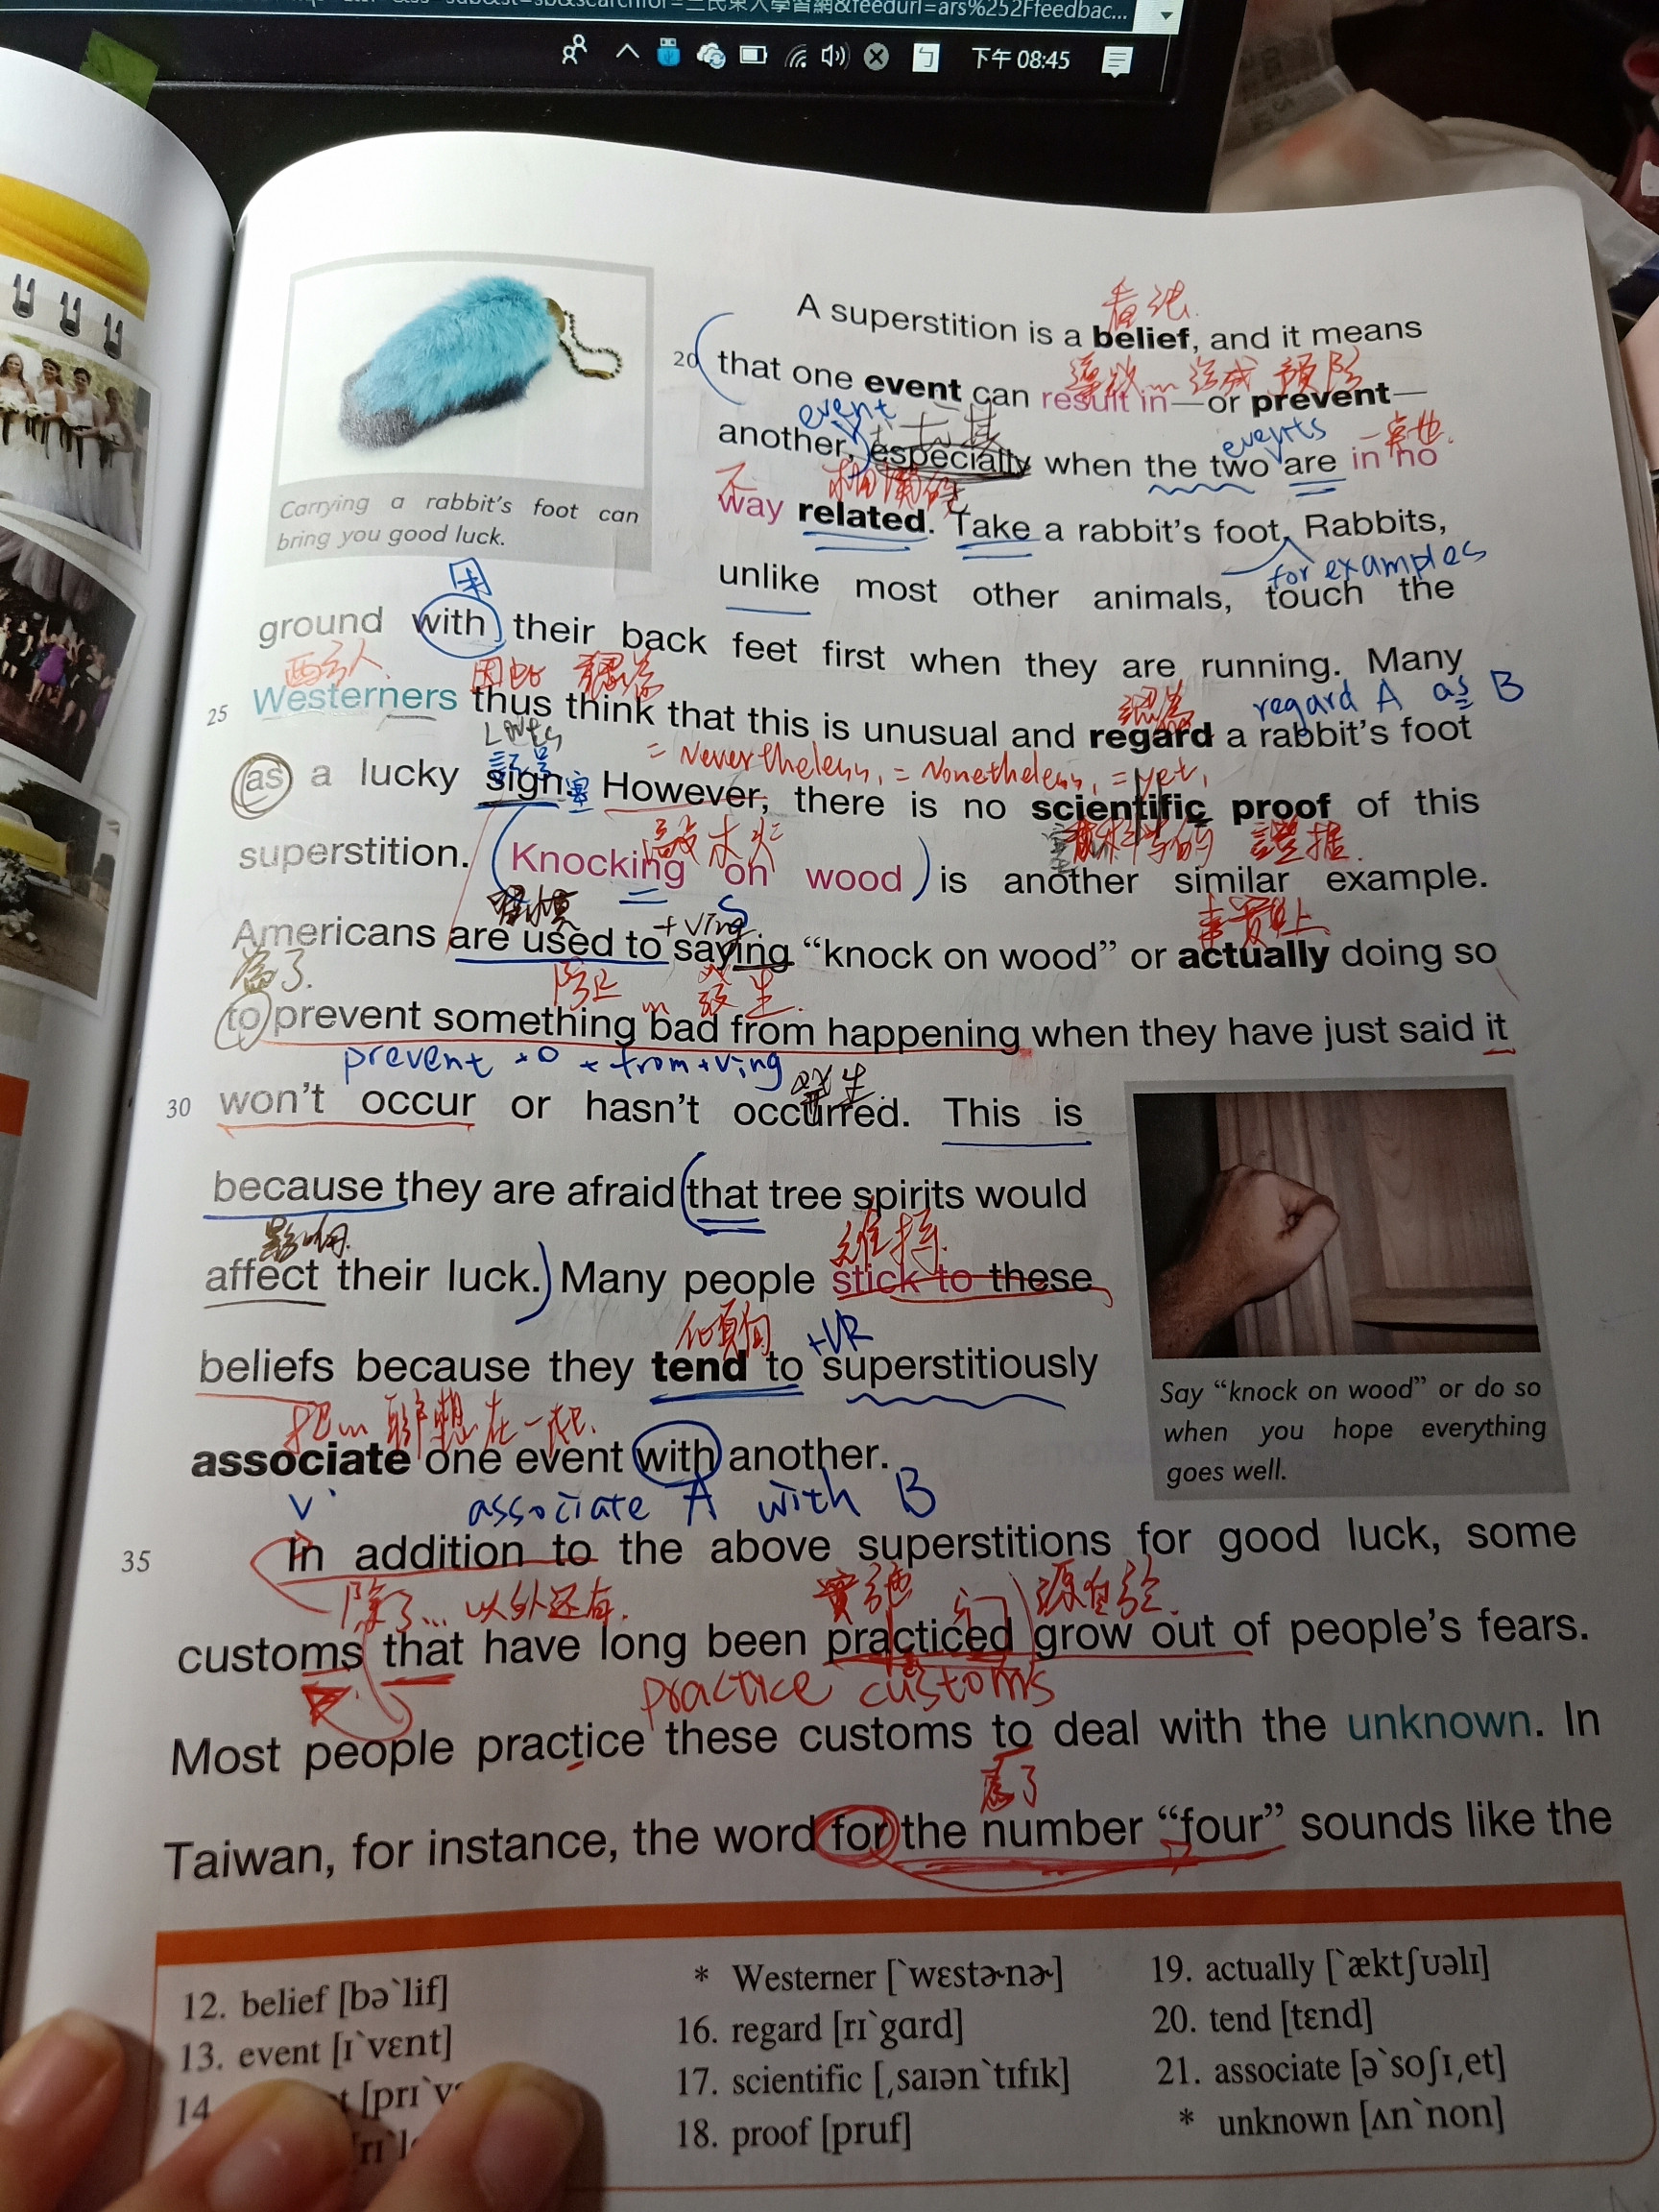 下午 08:45
A superstition is a belief, and it means
20 that one event can result in—or prevent—
event
another, especially when the two are in no
events
way related. Take a rabbit's foot. Rabbits,
for examples
unlike most other animals, touch the
Carrying a rabbit's foot can
bring you good luck.
ground with their back feet first when they are running. Many
西方人 因此 認為
regard A as B
25 Westerners thus think that this is unusual and regard a rabbit's foot
= Nevertheless, = Nonetheless, = yet,
as a lucky sign. However, there is no scientific proof of this
敲木頭
科學的 證據
superstition. Knocking on wood is another similar example.
+ Ving.
事實上
Americans are used to saying “knock on wood” or actually doing so
為了
防止 … 發生
to prevent something bad from happening when they have just said it
prevent + O + from + Ving
發生
30 won't occur or hasn't occurred. This is
because they are afraid that tree spirits would
影響
維持
affect their luck. Many people stick to these
傾向 +VR
beliefs because they tend to superstitiously
把…聯想在一起.
associate one event with another.
V.
associate A with B
Say “knock on wood” or do so
when you hope everything
goes well.
35 In addition to the above superstitions for good luck, some
除了...以外还有.
源自於.
customs that have long been practiced grow out of people's fears.
practice customs
Most people practice these customs to deal with the unknown. In
為了
Taiwan, for instance, the word for the number “four” sounds like the
12. belief [bə`lif]
13. event [ɪ`vɛnt]
14
* Westerner [`wɛstɚnɚ]
16. regard [rɪ`gɑrd]
17. scientific [ˌsaɪən`tɪfɪk]
18. proof [pruf]
19. actually [`æktʃʊəlɪ]
20. tend [tɛnd]
21. associate [ə`soʃɪˌet]
* unknown [ʌn`non]